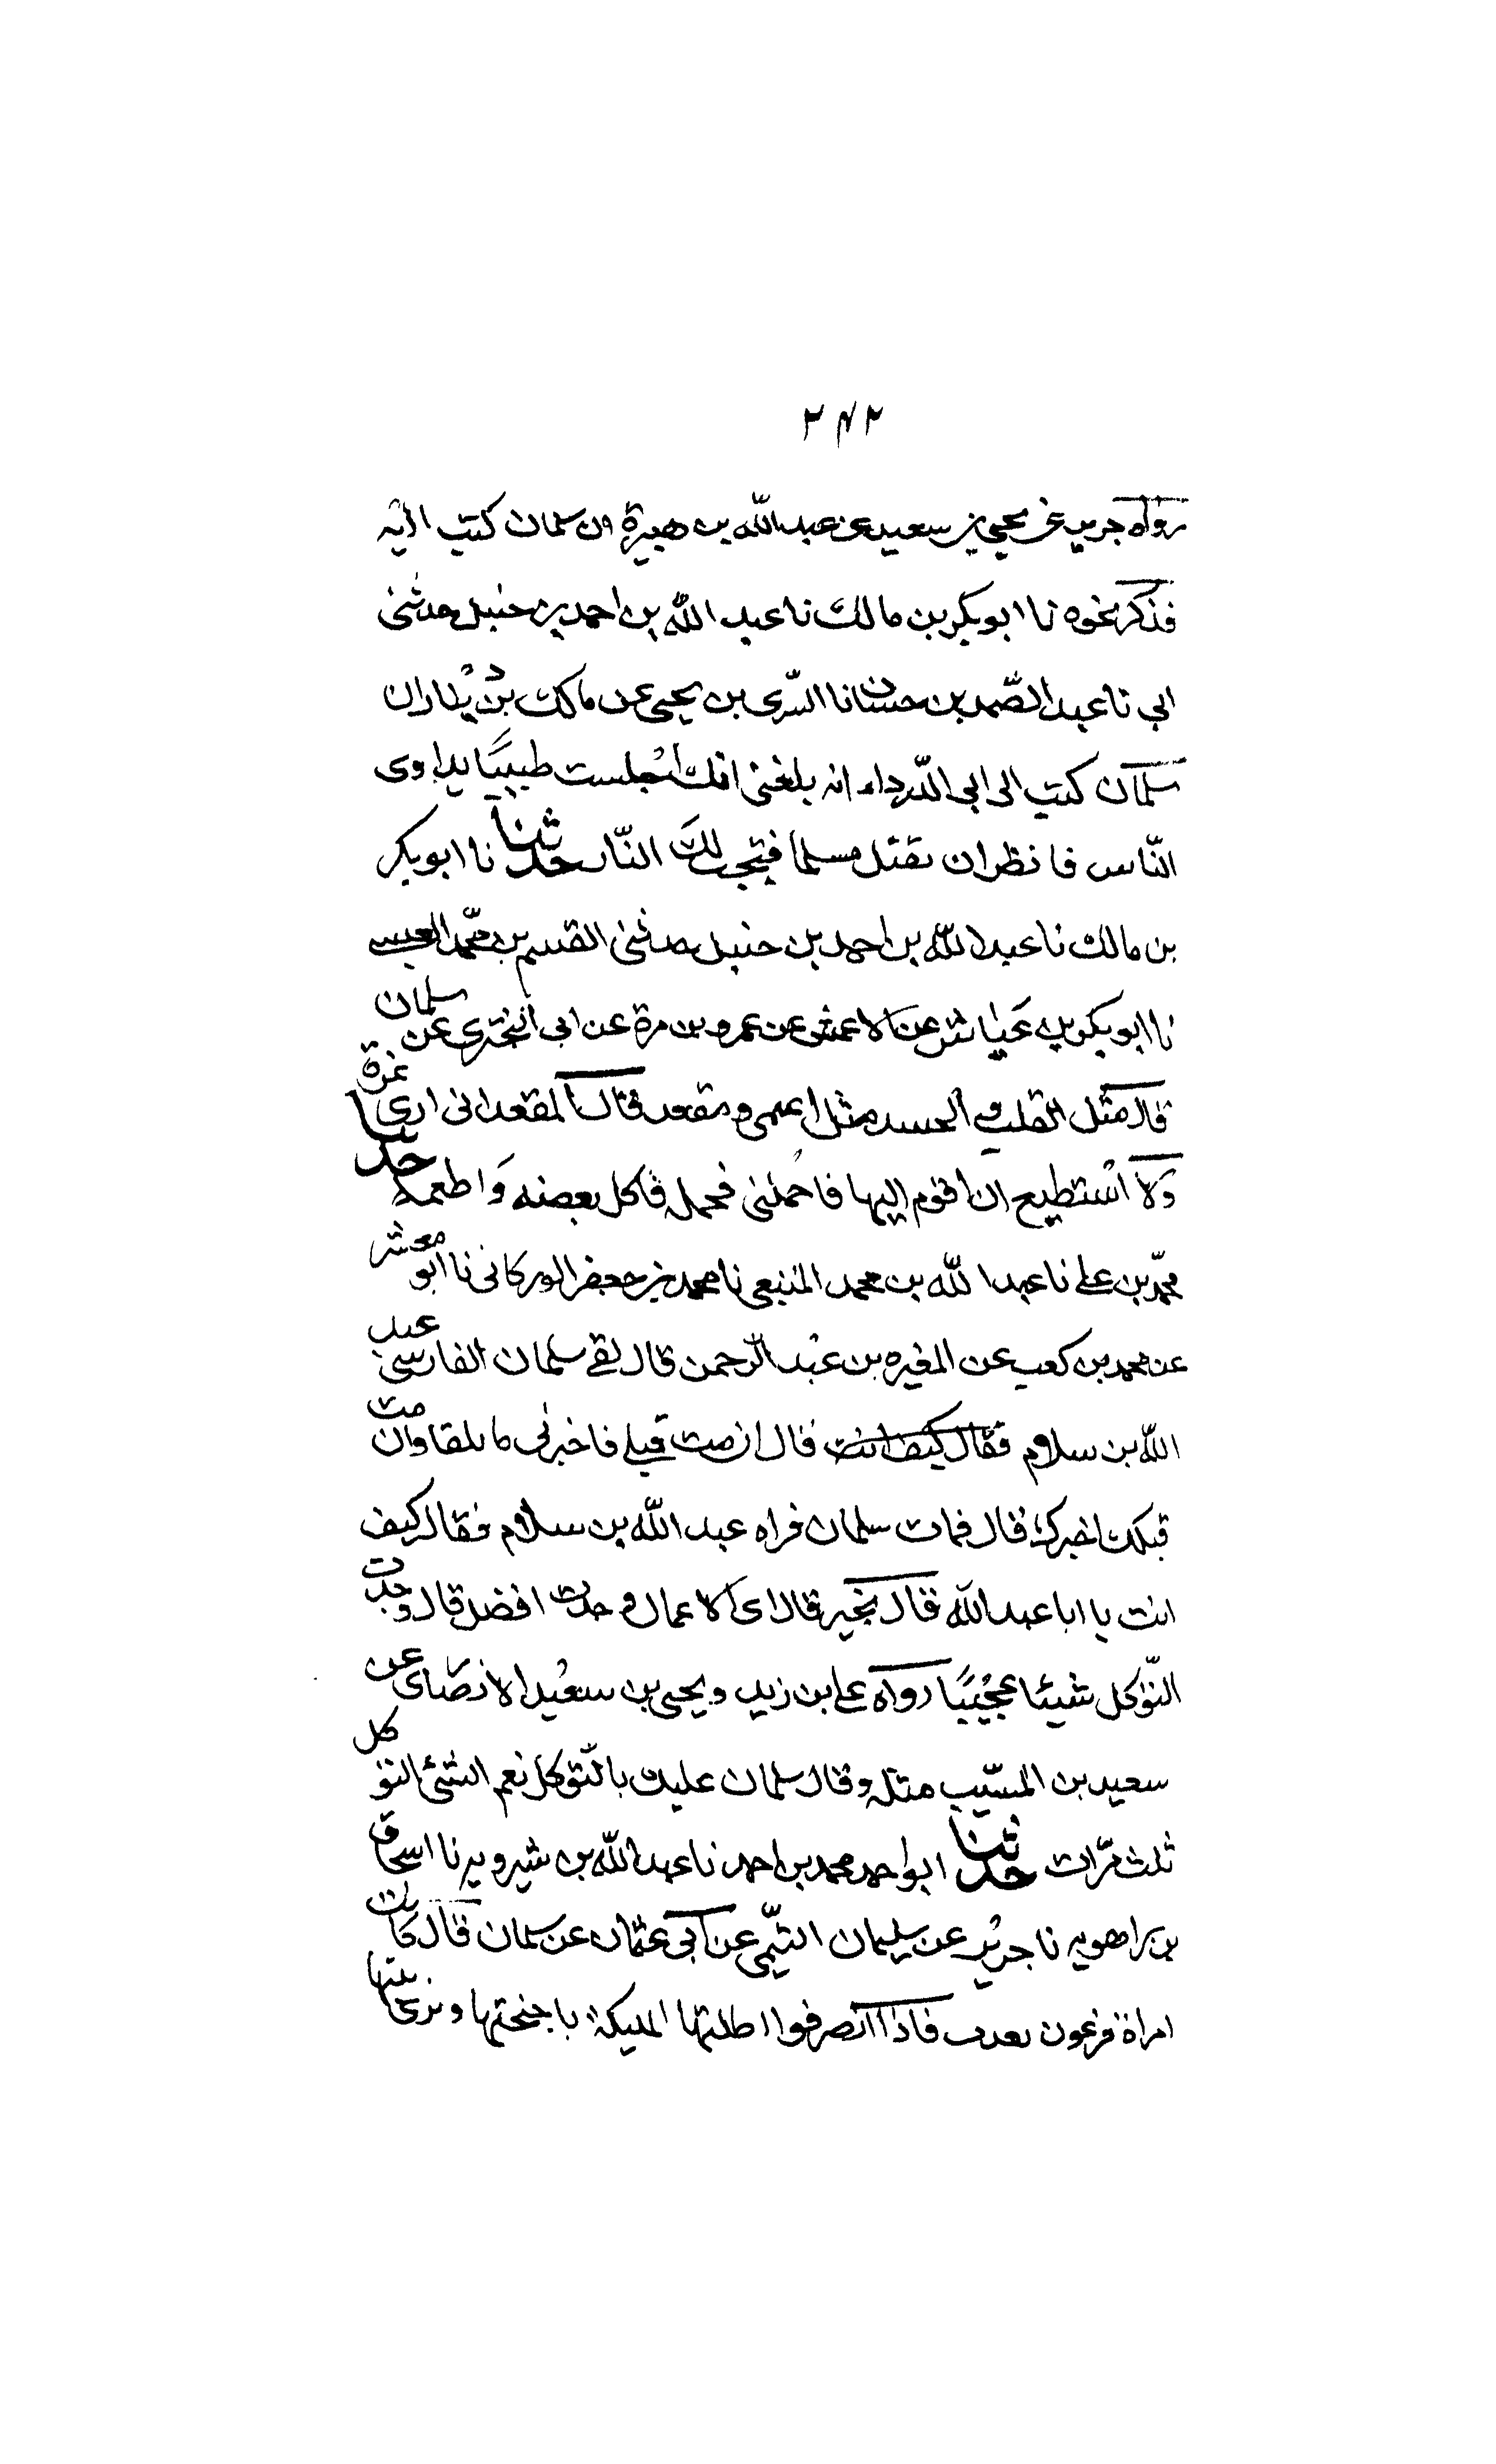 ٢٤٢
رواه جرير عن يحيى بن سعيد عن عبد الله بن هبيرة ان سلمان كتب اليه
فذكر نحوه نا ابو بكر بن مالك نا عبد الله بن احمد بن حنبل حدثنى
ابى نا عبد الصمد بن حسان نا السرى بن يحيى عن مالك بن دينار ان
سلمان كتب الى ابى الدرداء انه بلغنى انك اجلست طبيبًا يداوى
الناس فانظر ان تقتل مسلما فتجب لك النار حدثنا نا ابو بكر
بن مالك نا عبد الله بن احمد بن حنبل حدثنى القسم بن محمد العبسى
نا ابو بكر بن عياش عن الاعمش عن عمرو بن مرة عن ابى البخترى عن سلمان
قال مثل القلب والجسد مثل اعمى ومقعد قال المقعد انى ارى ثمرة
ولا استطيع ان اقوم اليها فاحملنى فحمله فاكل بعضه واطعمه حدثنا
محمد بن على نا عبد الله بن محمد المنيعى نا محمد بن جعفر الوركانى نا ابو معشر
عن محمد بن كعب عن المغيره بن عبد الرحمن قال لقى سلمان الفارسى عبد
الله بن سلام فقال كيف انت قال ان مت قبلى فاخبرنى ما تلقا وان مت
قبلك اخبرك قال فمات سلمان فراه عبد الله بن سلام فقال كيف
انت يا ابا عبد الله قال بخير قال اى الاعمال وجدت افضل قال وجدت
التوكل شيئا عجيبًا رواه على بن زيد ويحيى بن سعيد الانصارى عن
سعيد بن المسيب مثله وقال سلمان عليك بالتوكل نعم الشئ التوكل
ثلث مرات حدثنا ابو احمد محمد بن احمد نا عبد الله بن شيرويه نا اسحاق
بن راهويه نا جرير عن سليمان التيمى عن ابى عثمان عن سلمان قال كانت
امراة فرعون تعذب فاذا انصرفوا اظلتها المليكة باجنحتها وترى بيتها